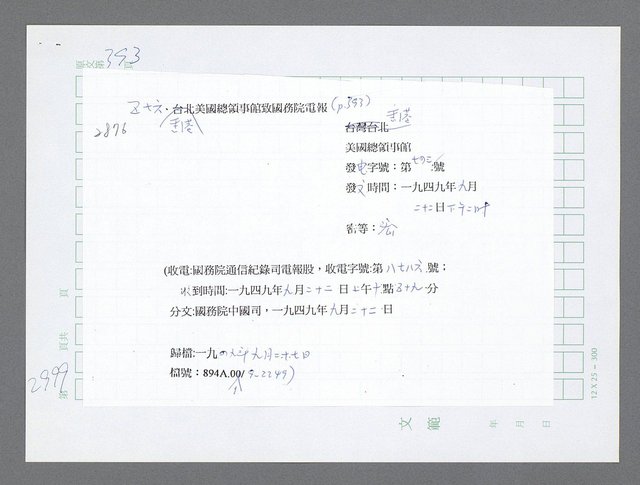 原文第393頁
五十六、台北美國總領事館致國務院電報(p393)
香港
2876
香港
台灣台北
美國總領事館
發電字號：第七四三號
發文時間：一九四九年九月
二十二日下午二時
密等：密
(收電:國務院通信紀錄司電報股，收電字號:第八七八六號；
收到時間:一九四九年九月二十二日上午十點五十九分
分文:國務院中國司，一九四九年九月二十二日
歸檔:一九四九年九月二十七日
檔號：894A.00/9-2249)
頁
頁共
第
2999
12 X 25 = 300
文範
年 月 日